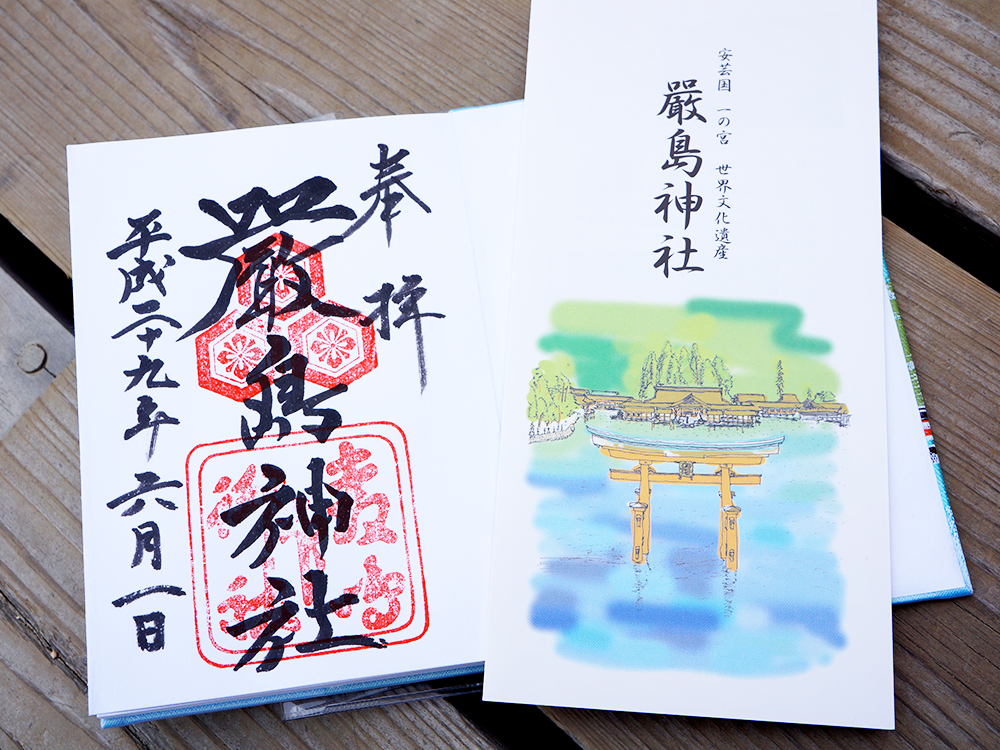 奉拝
嚴島神社
平成二十九年六月一日
安芸国 一の宮 世界文化遺産
嚴島神社